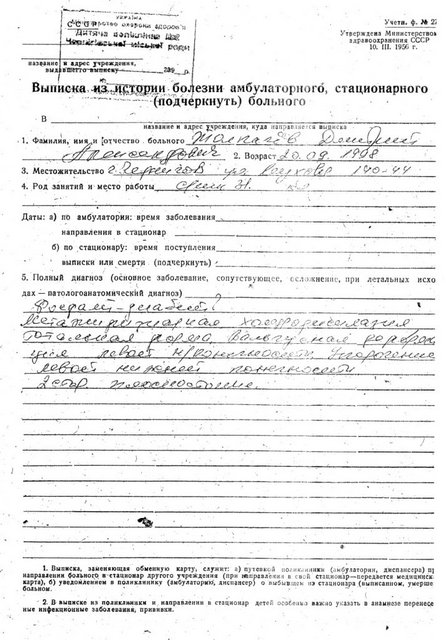 СССР
Дитяча поліклініка №2
Чернігівської міської ради
Учетн. ф. №
Утверждена Министерством
здравоохранения СССР
10. III. 1956 г.
название и адрес учреждения,
выдавшего выписку
Выписка из истории болезни амбулаторного, стационарного
(подчеркнуть) больного
В
название и адрес учреждения, куда направляется выписка
1. Фамилия, имя и отчество больного Дмитрий
Александрович 2. Возраст 20.09.1998
3. Местожительство г. Чернигов ул. 140-44
4. Род занятий и место работы
Даты: а) по амбулатории: время заболевания
направления в стационар
б) по стационару: время поступления
выписки или смерти (подчеркнуть)
5. Полный диагноз (основное заболевание, сопутствующее, осложнение, при летальных исхо
дах — патологоанатомический диагноз)
Фосфат-диабет?
Метафизарная хондродисплазия
тотальная форма. Вальгусная деформа
ция левой н/конечности. Укорочение
левой нижней конечности
2 стор. плоскостопие.
1. Выписка, заменяющая обменную карту, служит: а) путевкой поликлиники (амбулатории, диспансера) п
направлении больного в стационар другого учреждения (при направлении в свой стационар—передается медицинск
карта), б) уведомлением в поликлинику (амбулаторию, диспансер) о выбывшем из стационара (выписанном, умерше
больном.
2. В выписке из поликлиники и направлении в стационар детей особенно важно указать в анамнезе перенесе
ные инфекционные заболевания, прививки.